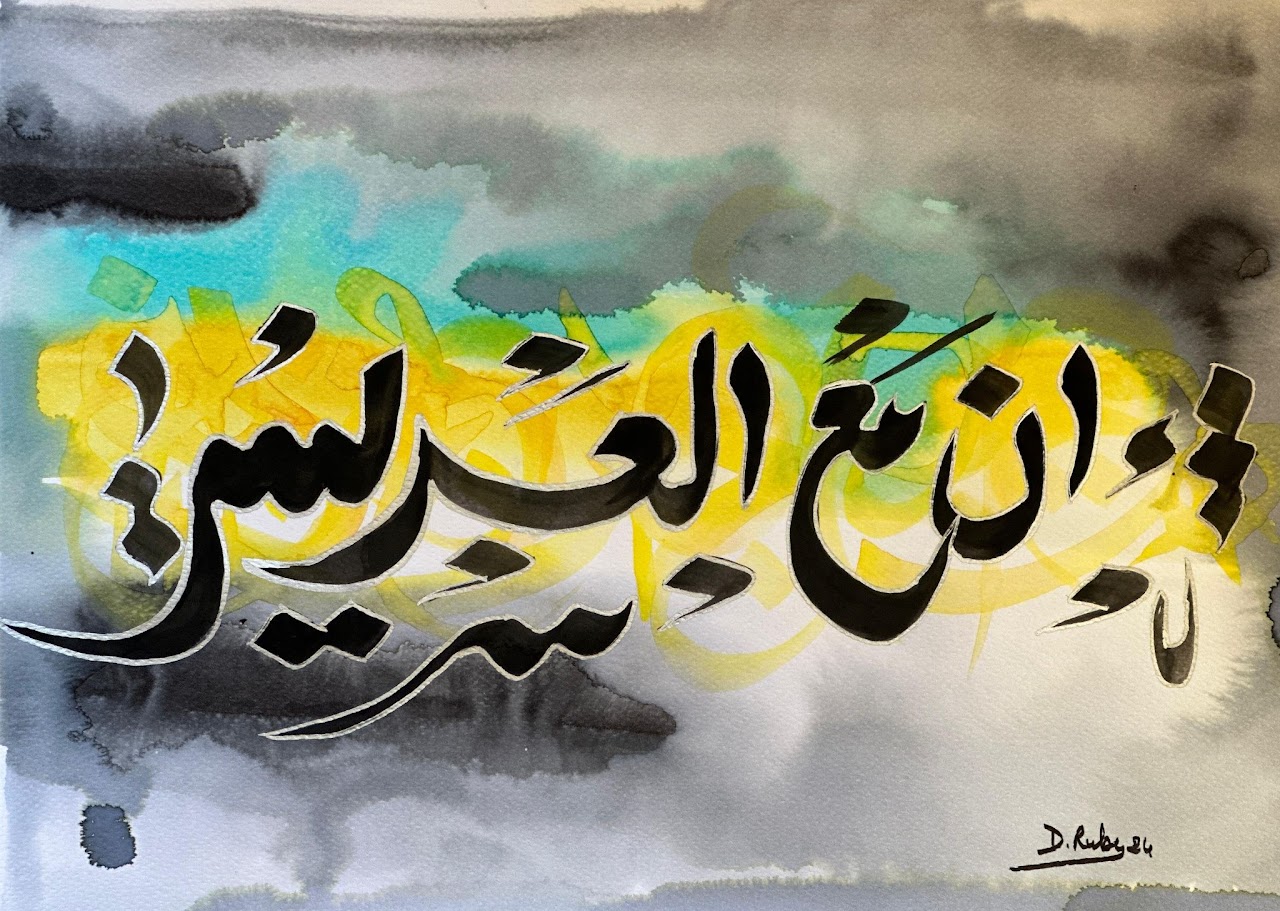 إن مع العسر يسرا
D. Ruby 24